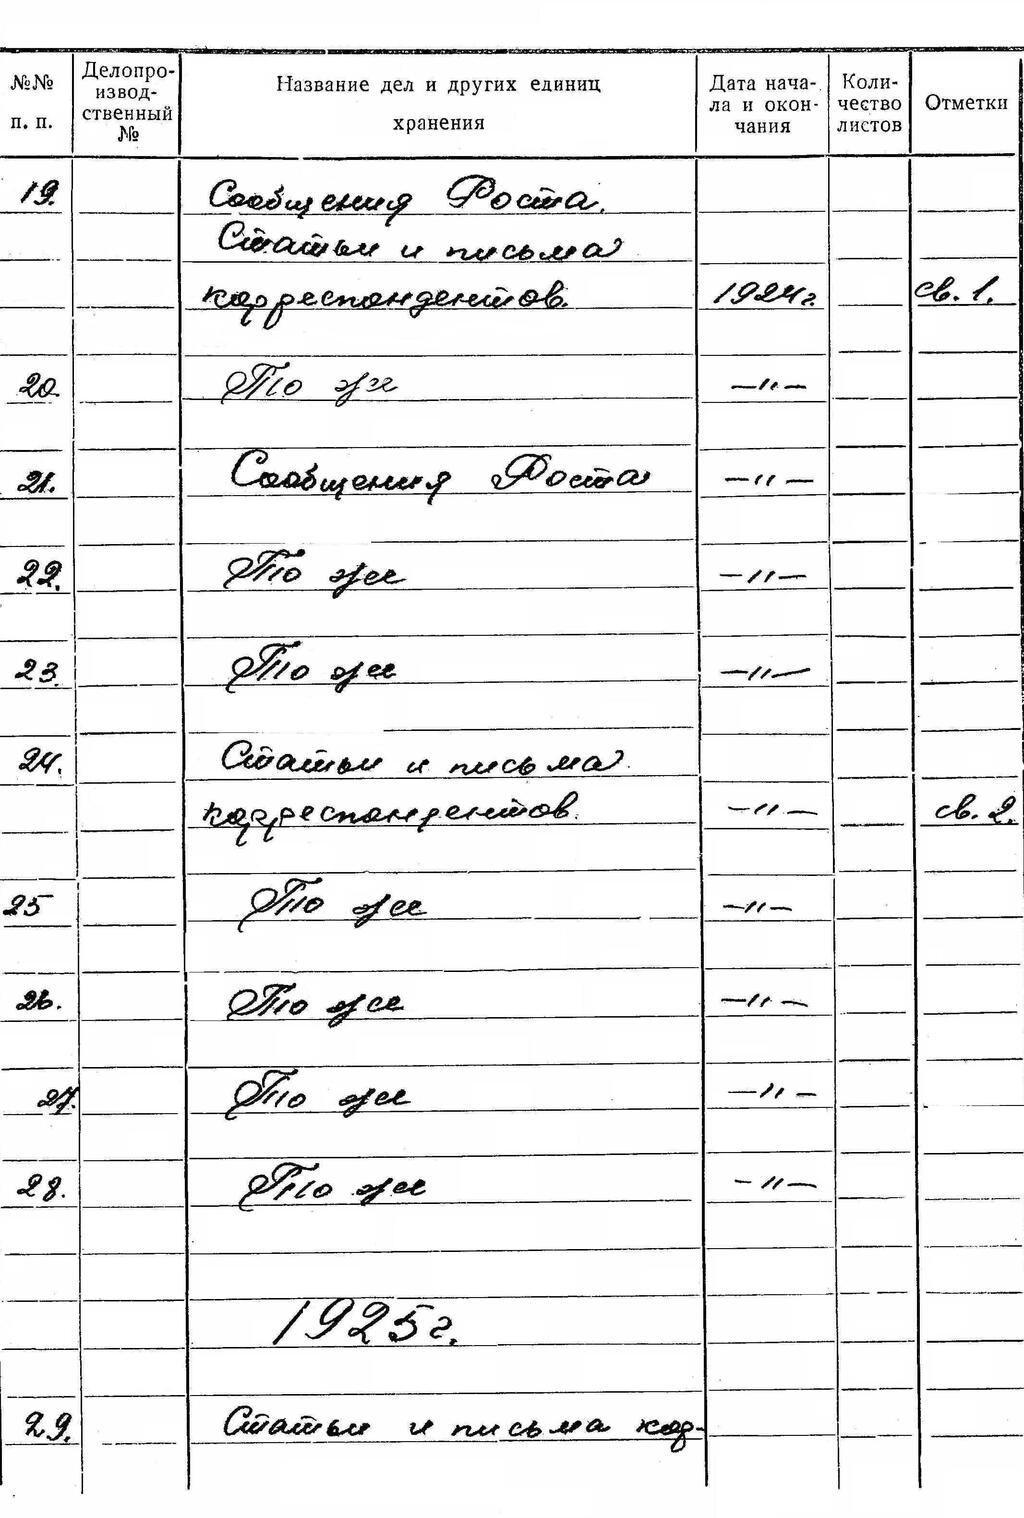 №№ п. п. Делопроизводственный № Название дел и других единиц хранения Дата начала и окончания Количество листов Отметки
19. Сообщения Роста.
Статьи и письма
корреспондентов. 1924 г. св. 1.
20. То же —〃—
21. Сообщения Роста —〃—
22. То же —〃—
23. То же —〃—
24. Статьи и письма
корреспондентов. —〃— св. 2.
25 То же —〃—
26. То же —〃—
27. То же —〃—
28. То же —〃—
1925 г.
29. Статьи и письма кор-